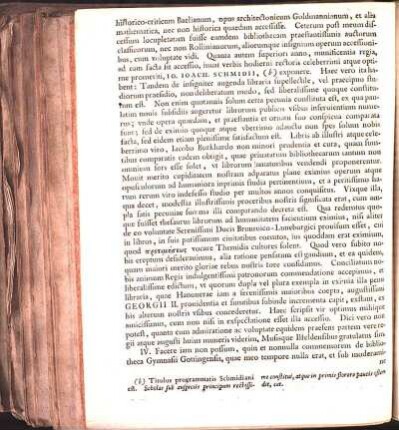 historico-criticum Baelianum, opus architectonicum Goldmannianum, et alia
mathematica, nec non historica quaedam accessisse. Ceterum post meum dis-
cessum locupletatam fuisse eamdem bibliothecam praestantissimis auctorum
classicorum, nec non Rollinianorum, aliorumque insignium operum accessioni-
bus, cum voluptate vidi. Quanta autem superiori anno, munificentia regia,
ad eam facta sit accessio, iuvat verbis hodierni rectoris celeberrimi atque opti-
me promeriti, IO. IOACH. SCHMIDII, (k) exponere. Haec vero ita ha-
bent: Tandem de insigniter augenda libraria supellectile, vel praecipuo stu-
diorum praesidio, non deliberatum modo, sed liberalissime quoque constitu-
tum est. Non enim quotannis solum certa pecunia constituta est, ex qua pau-
latim novis subsidiis augeretur librorum publicis usibus inservientium nume-
rus; unde opera quaedam, et praestantia et ornatu suo conspicua comparata
sunt; sed de eximio quoque atque uberrimo adauctu non spes solum nobis
facta, sed eidem etiam plenissime satisfactum est. Libris ab illustri atque cele-
berrimo viro, Iacobo Burkhardo non minori prudentia et cura, quam sum-
tibus comparatis eadem obtigit, quae privatarum bibliothecarum tantum non
omnium sors esse solet, ut librorum amatoribus vendendi proponerentur.
Movit merito cupiditatem nostram adparatus plane eximius operum atque
opusculorum ad humaniora inprimis studia pertinentium, et a peritissimo ha-
rum rerum viro indefesso studio per multos annos conquisitus. Vixque illa,
qua decet, modestia illustrissimis proceribus nostris significata erat, cum am-
pla satis pecuniae summa illi comparando decreta est. Qua redemtus quo-
que fuisset thesaurus librorum ad humanitatem facientium eximius, nisi aliter
de eo voluntate Serenissimi Ducis Brunovico-Luneburgici provisum esset, cui
in libros, in suis potissimum civitatibus exeuntes, ius quoddam erat eximium,
quod vocare Themidis cultores solent. Quod vero subito no-
bis ereptum desideravimus, alia ratione pensatum est quidem, et ea quidem,
quam maiori merito gloriae rebus nostris fore confidimus. Conciliatum no-
bis animum Regis indulgentissimi patronorum commendatione accepimus, et
liberalissime edictum, ut quorum dupla vel plura exempla in eximia illa pen-
libraria, quae Hanoverae iam a serenissimis maioribus coepta, augustissimi
GEORGII II. providentia et sumtibus subinde incrementa capit, exstant, ex
his alterum nostris usibus concederetur. Haec scripsit vir optimus mihique
amicissimus, cum non nisi in exspectatione esset illa accessio. Dici vero non
potest, quanta cum admiratione ac voluptate equidem praesens partem verere-
gii atque augusti huius muneris viderim, Musisque Ilfeldensibus gratulatus sim.
IV. Facere iam non possum, quin et nonnulla commemorem de biblio-
theca Gymnasii Gottingensis, quae meo tempore nulla erat, et sub moderami-
ne
(k) Titulus programmatis Schmidiani
est. Scholas sub auspiciis principum rectissi-
me constitui, atque in primis florere paucis osten-
dit, etc.